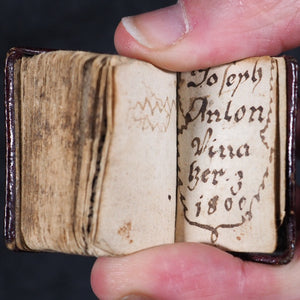 Joseph
Anlon
Vina
zer. z
180